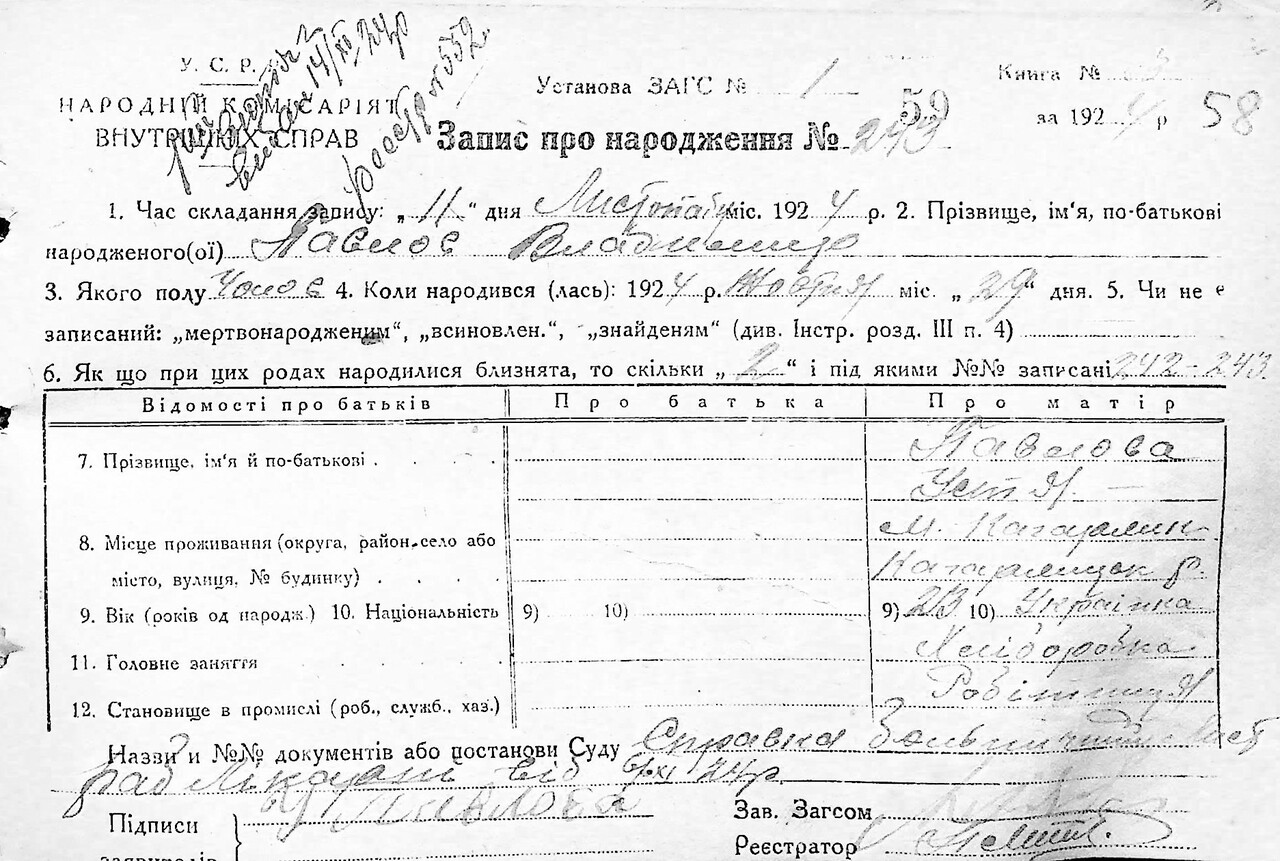 У. С. Р. Р.
НАРОДНІЙ КОМІСАРІЯТ
ВНУТРІШНІХ СПРАВ
14/XII 24р
реєстр № 552
Установа ЗАГС № 1
Книга № 3
за 1924 р 58
59
Запис про народження № 243
1. Час складання запису: „ 11 “ дня Листопаду міс. 1924 р. 2. Прізвище, ім‘я, по-батькові
народженого(ої) Павлов Владимир
3. Якого полу Чолов 4. Коли народився (лась): 1924 р. Жовтня міс. „ 29 “ дня. 5. Чи не є
записаний: „мертвонародженим“, „всиновлен.“, „знайденям“ (див. Інстр. розд. III п. 4)
6. Як що при цих родах народилися близнята, то скільки „ 2 “ і під якими №№ записані 242-243.
Відомості про батьків Про батька Про матір
7. Прізвище, ім‘я й по-батькові . . . . Павлова
Устя
8. Місце проживання (округа, район, село або м. Кагарлик
місто, вулиця, № будинку) . . . . Кагарлицьк р.
9. Вік (років од народж.) 10. Національність 9) 10) 9) 23 10) Українка
11. Головне заняття . . . . . Хліборобка
12. Становище в промислі (роб., служб., хаз.) Робітниця
Назви и №№ документів або постанови Суду Справка
рад Лікарань від 6/XI 24р.
Підписи Павлова Зав. Загсом
заявителів Реєстратор